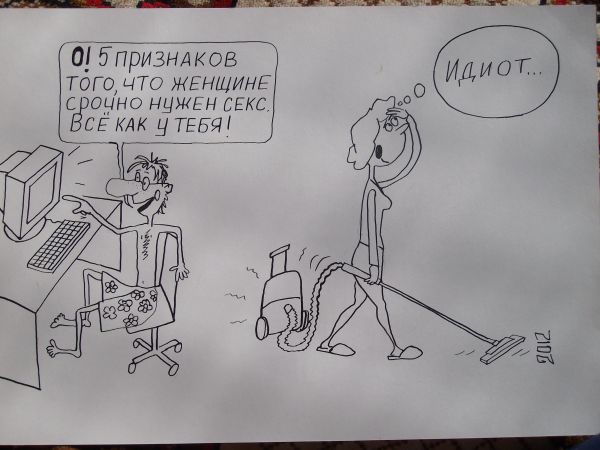 О! 5 ПРИЗНАКОВ
ТОГО, ЧТО ЖЕНЩИНЕ
СРОЧНО НУЖЕН СЕКС.
ВСЁ КАК У ТЕБЯ!
ИДИОТ...
2012